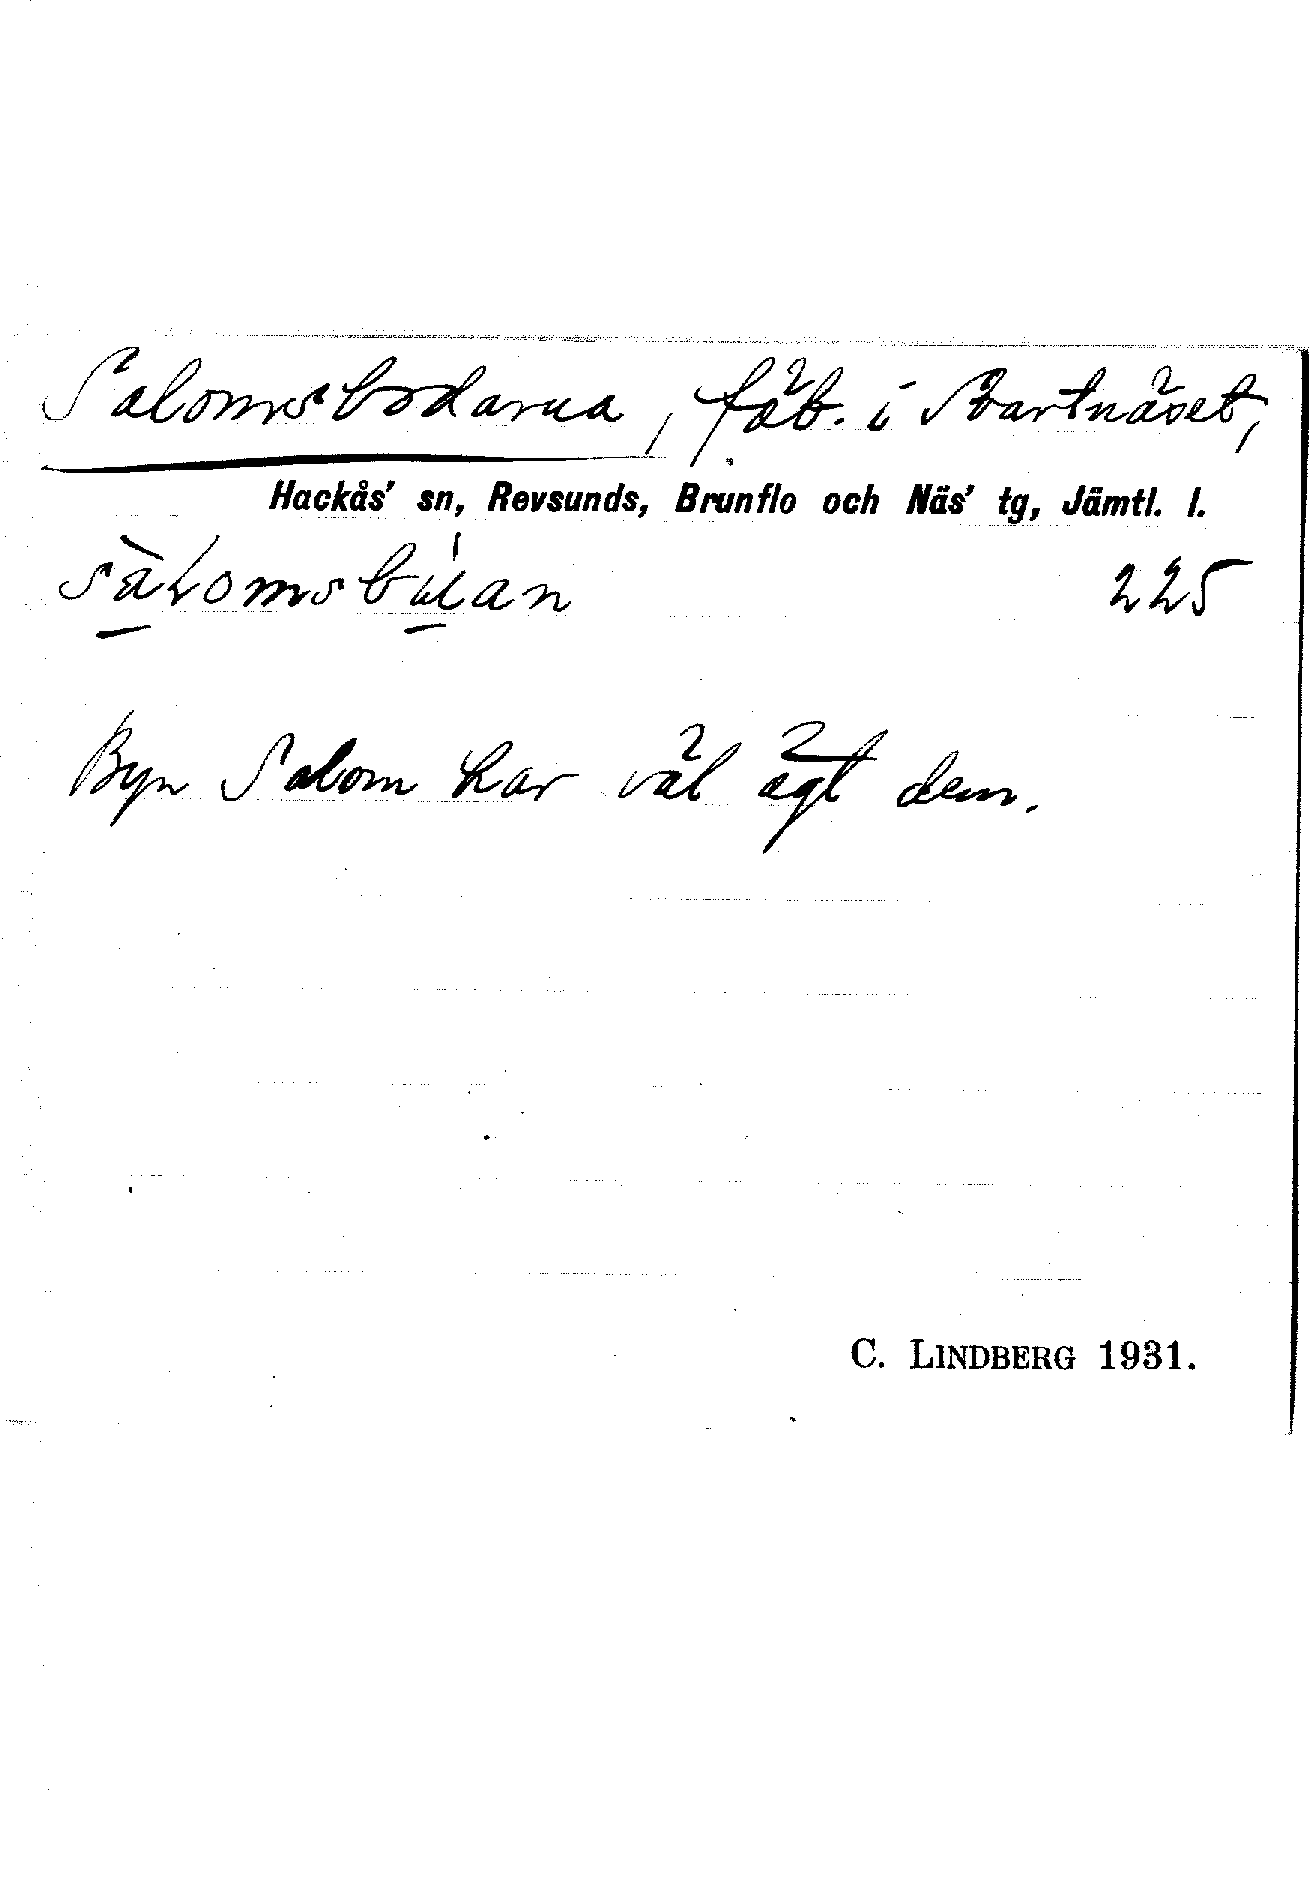 Salomsbodarna, fäb. i Svartnäset,
Hackås' sn, Revsunds, Brunflo och Näs' tg, Jämtl. l.
225
Byn Salom har väl ägt dem.
C. LINDBERG 1931.